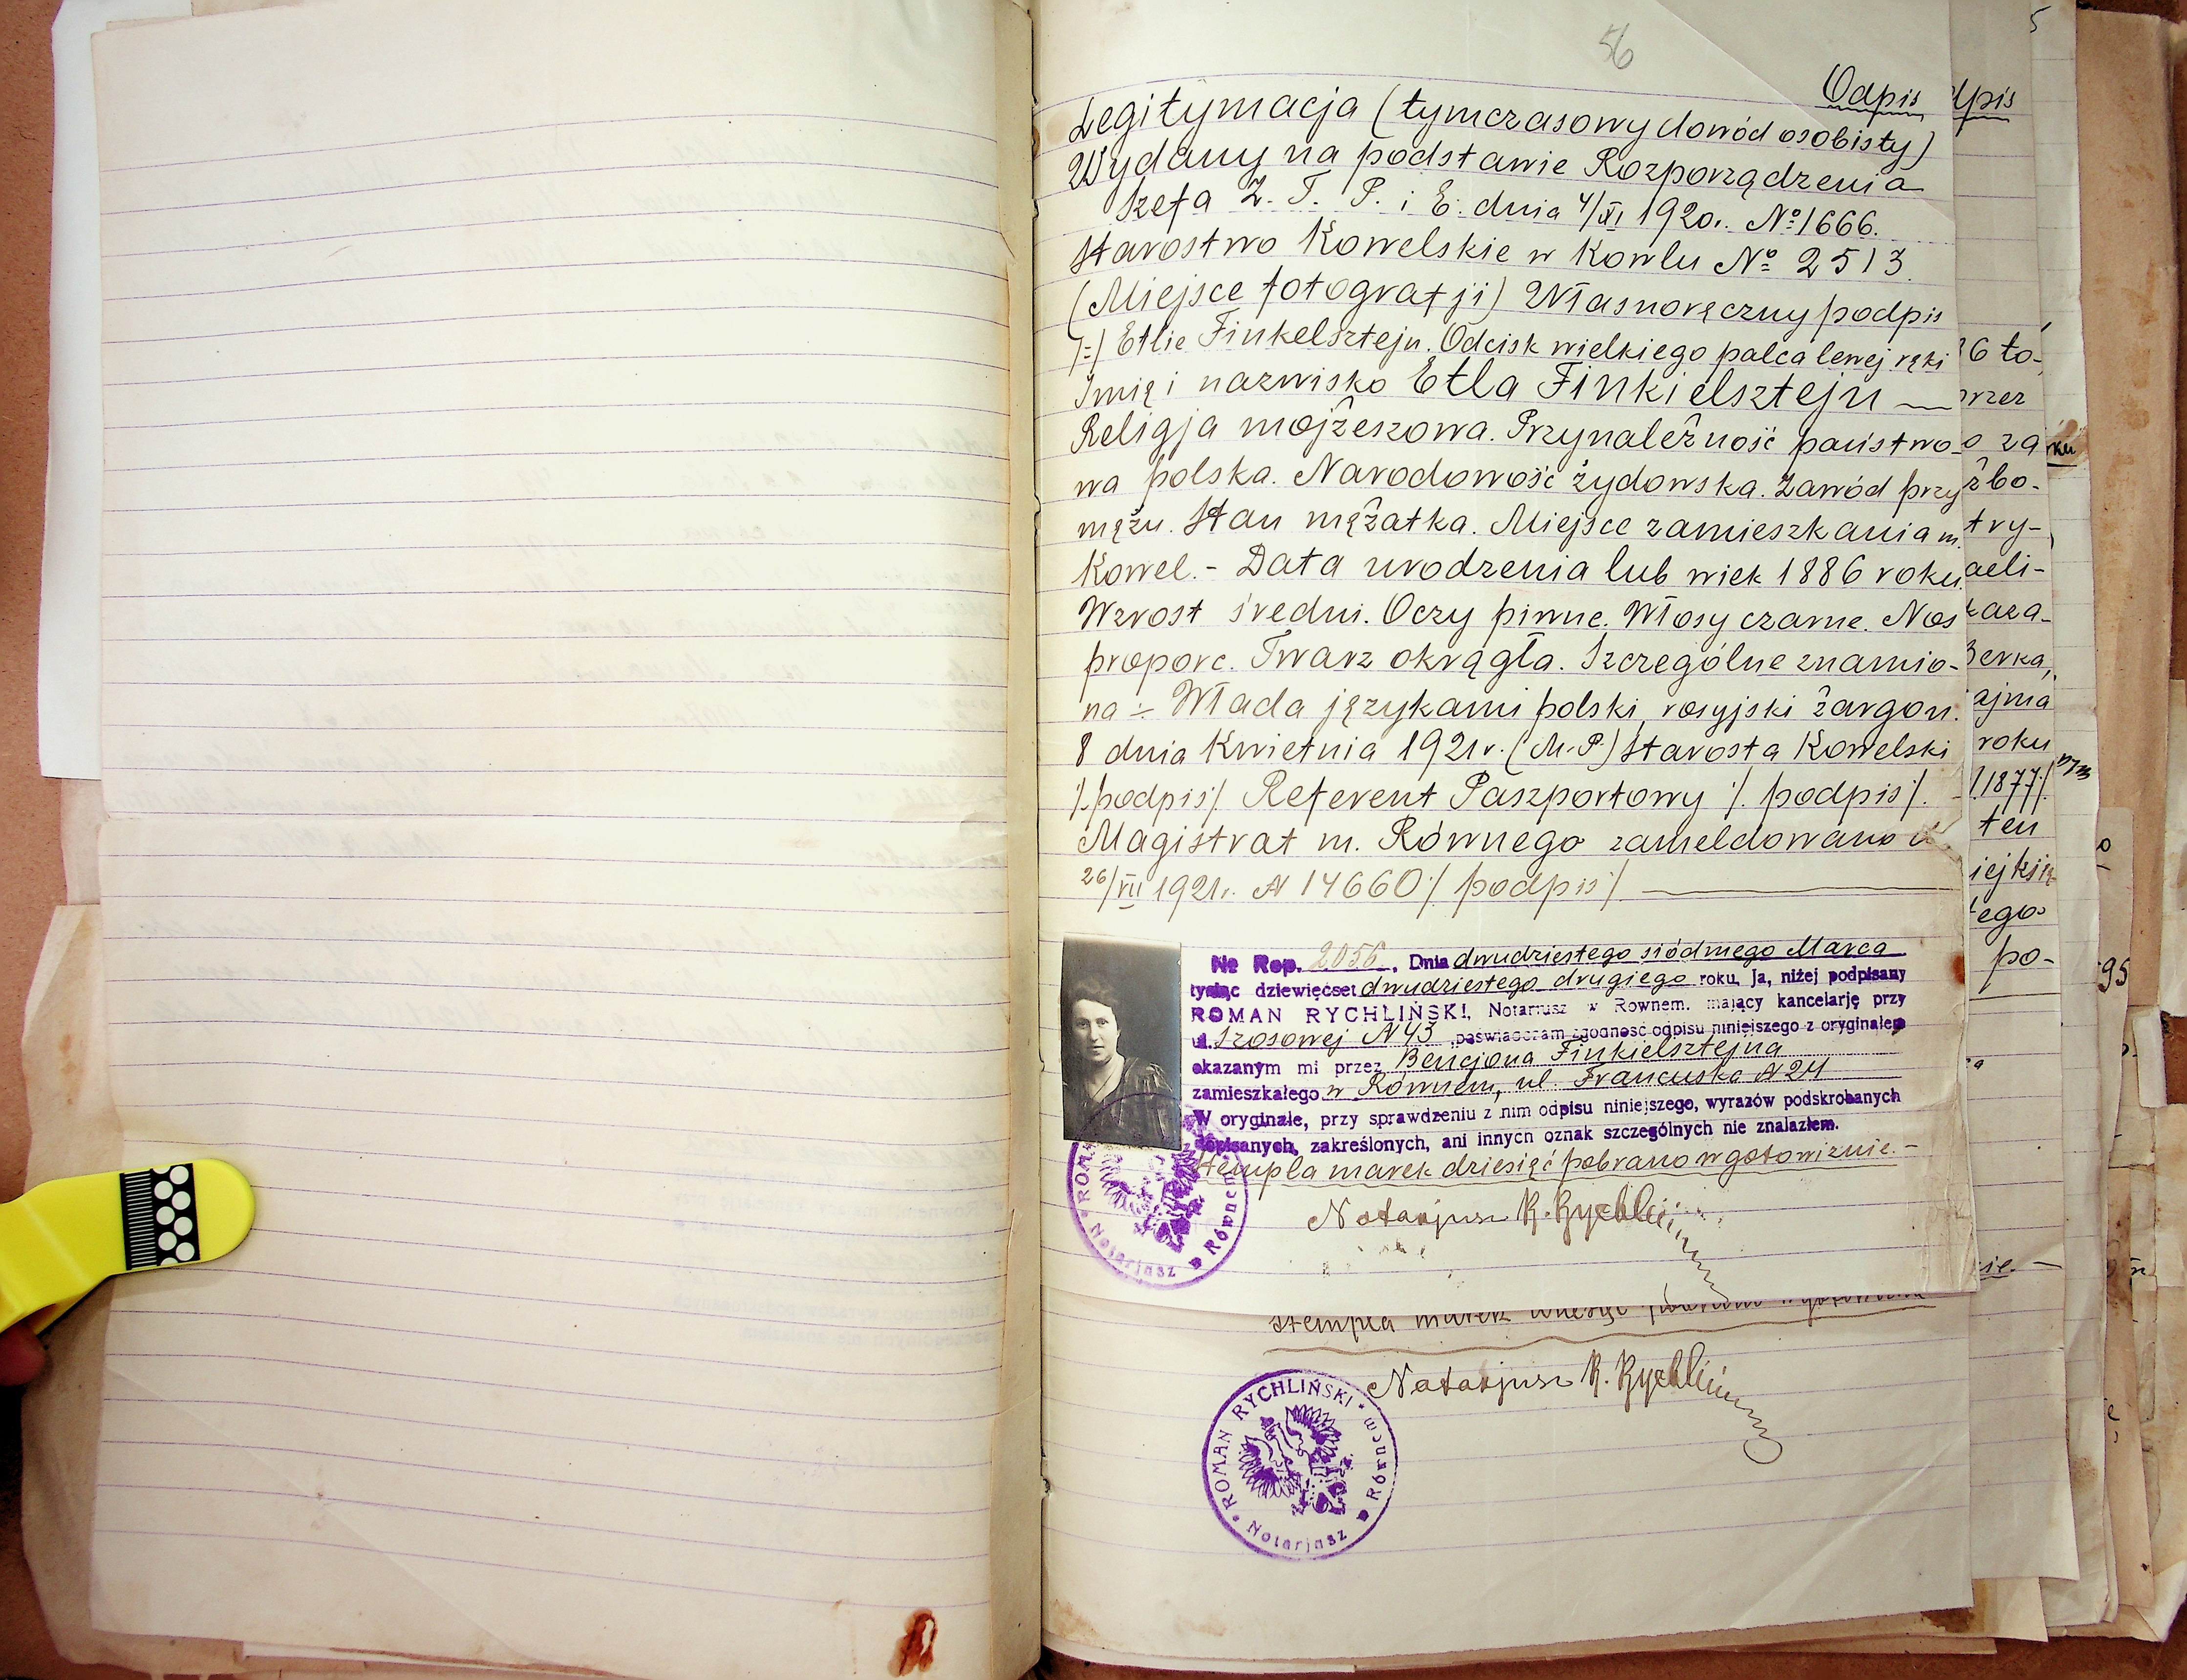 56
Odpis
Legitymacja (tymczasowy dowód osobisty)
Wydany na podstawie Rozporządzenia
Szefa Z. T. P. i E. dnia 4/XI 1920r. №1666.
Starostwo Kowelskie w Kowlu № 2513.
(Miejsce fotografji) Własnoręczny podpis
/-/ Etlie Finkelsztejn. Odcisk wielkiego palca lewej ręki
Imię i nazwisko Etla Finkielsztejn —
Religja mojżeszowa. Przynależność państwo-
wa polska. Narodowość żydowska. Zawód przy
mężu. Stan mężatka. Miejsce zamieszkania m.
Kowel.- Data urodzenia lub wiek 1886 roku.
Wzrost średni. Oczy piwne. Włosy czarne. Nos
proporc. Twarz okrągła. Szczególne znamio-
na ÷ Włada językami polski, rosyjski żargon.
8 dnia Kwietnia 1921r. (M.P.) Starosta Kowelski
/.podpis/. Referent Paszportowy /. podpis/.
Magistrat m. Równego zameldowano
26/VII 1921r. N 14660 /. podpis/.
№ Rep. 2056, Dnia dwudziestego siódmego Marca
tysiąc dziewięćset dwudziestego drugiego roku, Ja, niżej podpisany
ROMAN RYCHLIŃSKI, Notarjusz w Równem. mający kancelarję przy
ul. Szosowej N 43, poświadczam zgodność odpisu niniejszego z oryginałem
okazanym mi przez Bencjona Finkielsztejna
zamieszkałego w Równem, ul. Francuska N 24
W oryginale, przy sprawdzeniu z nim odpisu niniejszego, wyrazów podskrobanych
dopisanych, zakreślonych, ani innych oznak szczególnych nie znalazłem.
Stempla marek dziesięć pobrano w gotowiznie.-
Notarjusz R. Rychliński
Notarjusz w Równem
stempla marek
Notarjusz R. Rychliński
ROMAN RYCHLIŃSKI
Notarjusz w Równem
dpis
36 to-
przez
o za
żbo-
try-
aeli-
kaza-
Berka,
ajma
roku
1877/.
ten
iej
tego
po-
95